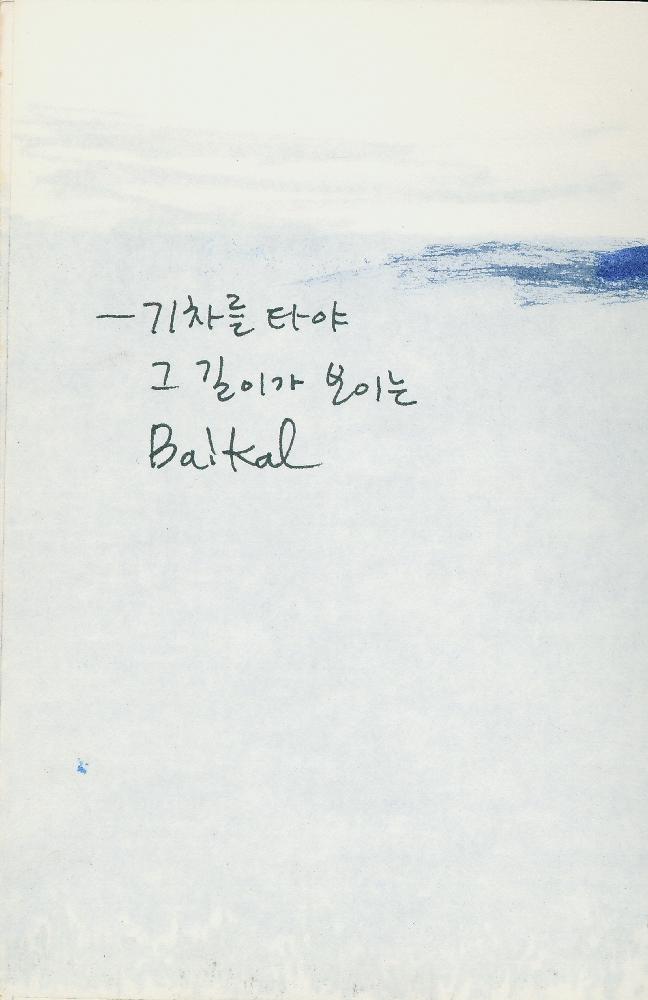 —기차를 타야
그 길이가 보이는
Baikal